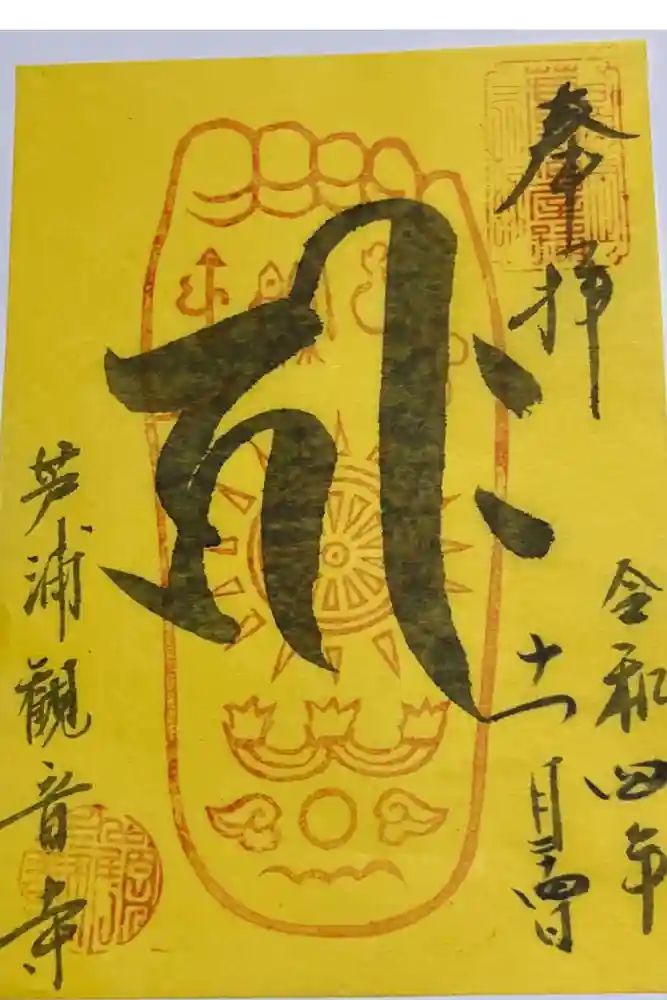 奉拝
令和四年
十一月
𑖭𑖾
芦浦観音寺